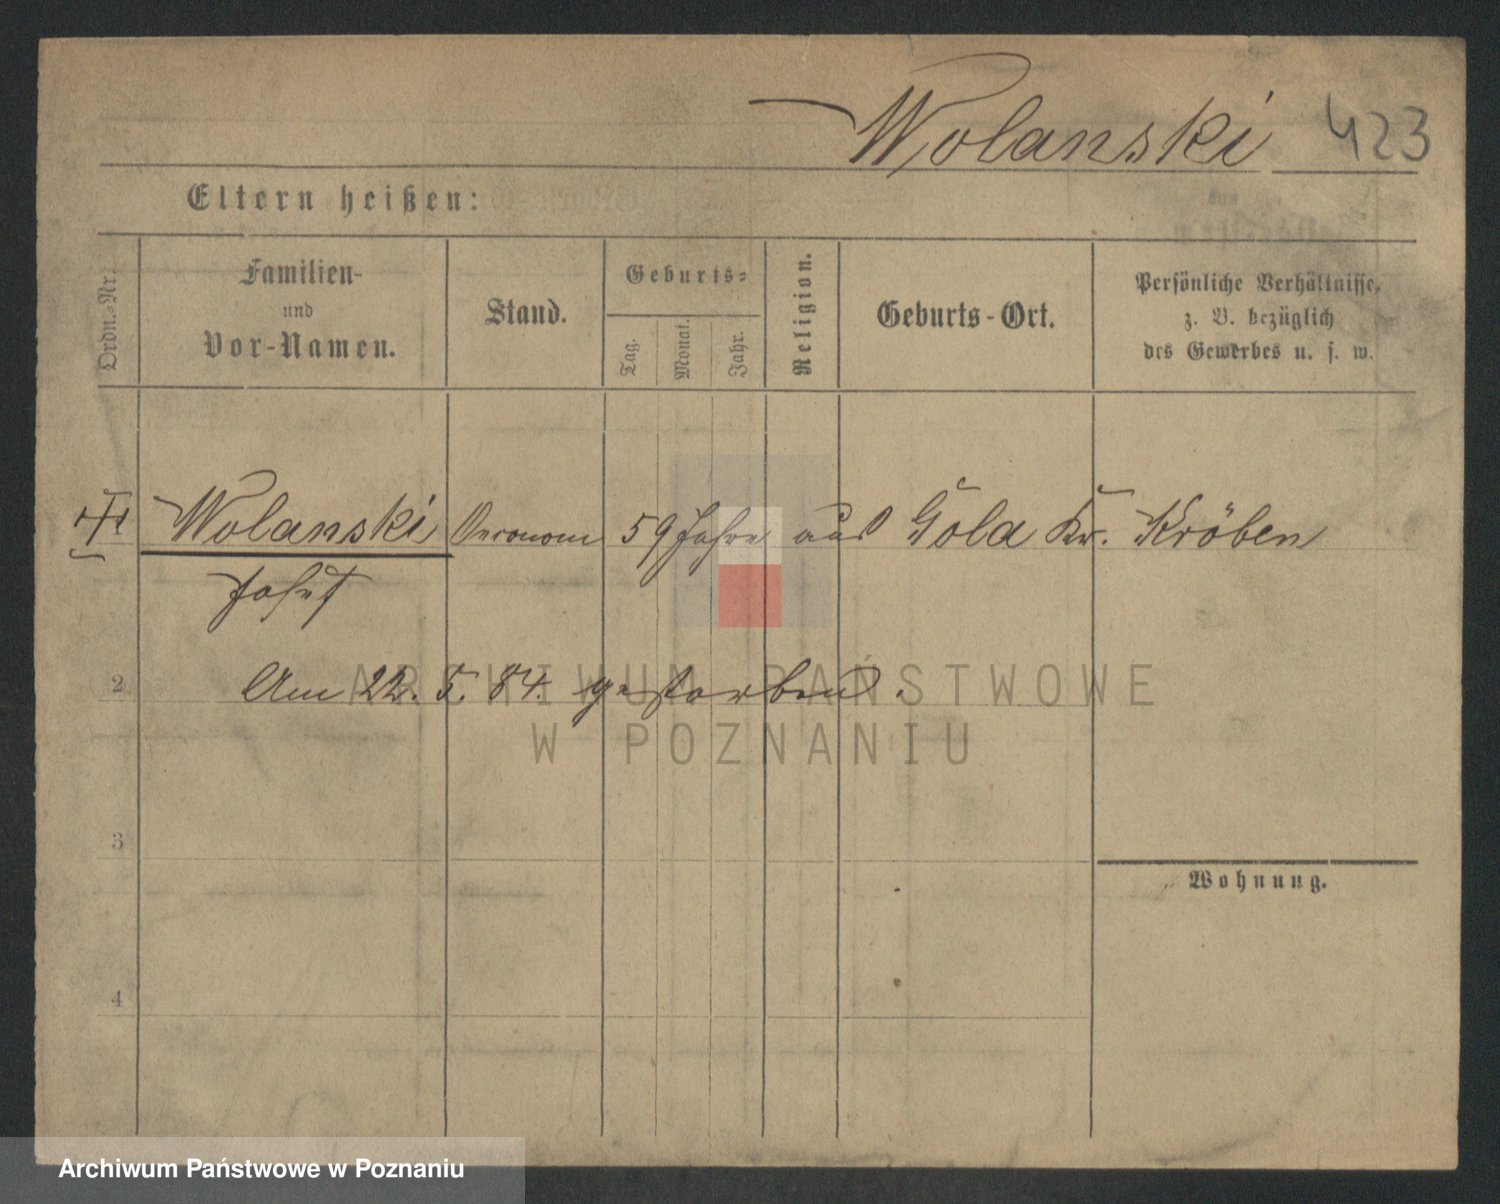 Wolanski 423
Eltern heißen:
Ordn.-Nr.
Familien-
und
Vor-Namen.
Stand.
Geburts-
Tag.
Monat.
Jahr.
Religion.
Geburts-Ort.
Persönliche Verhältnisse,
z. B. bezüglich
des Gewerbes u. s. w.
Wolanski Oeconom 59 Jahre aus Gola Kr. Kröben
Josef
2 Am 22. 5. 84. gestorben.
3
Wohnung.
4
ARCHIWUM PAŃSTWOWE
W POZNANIU
Archiwum Państwowe w Poznaniu